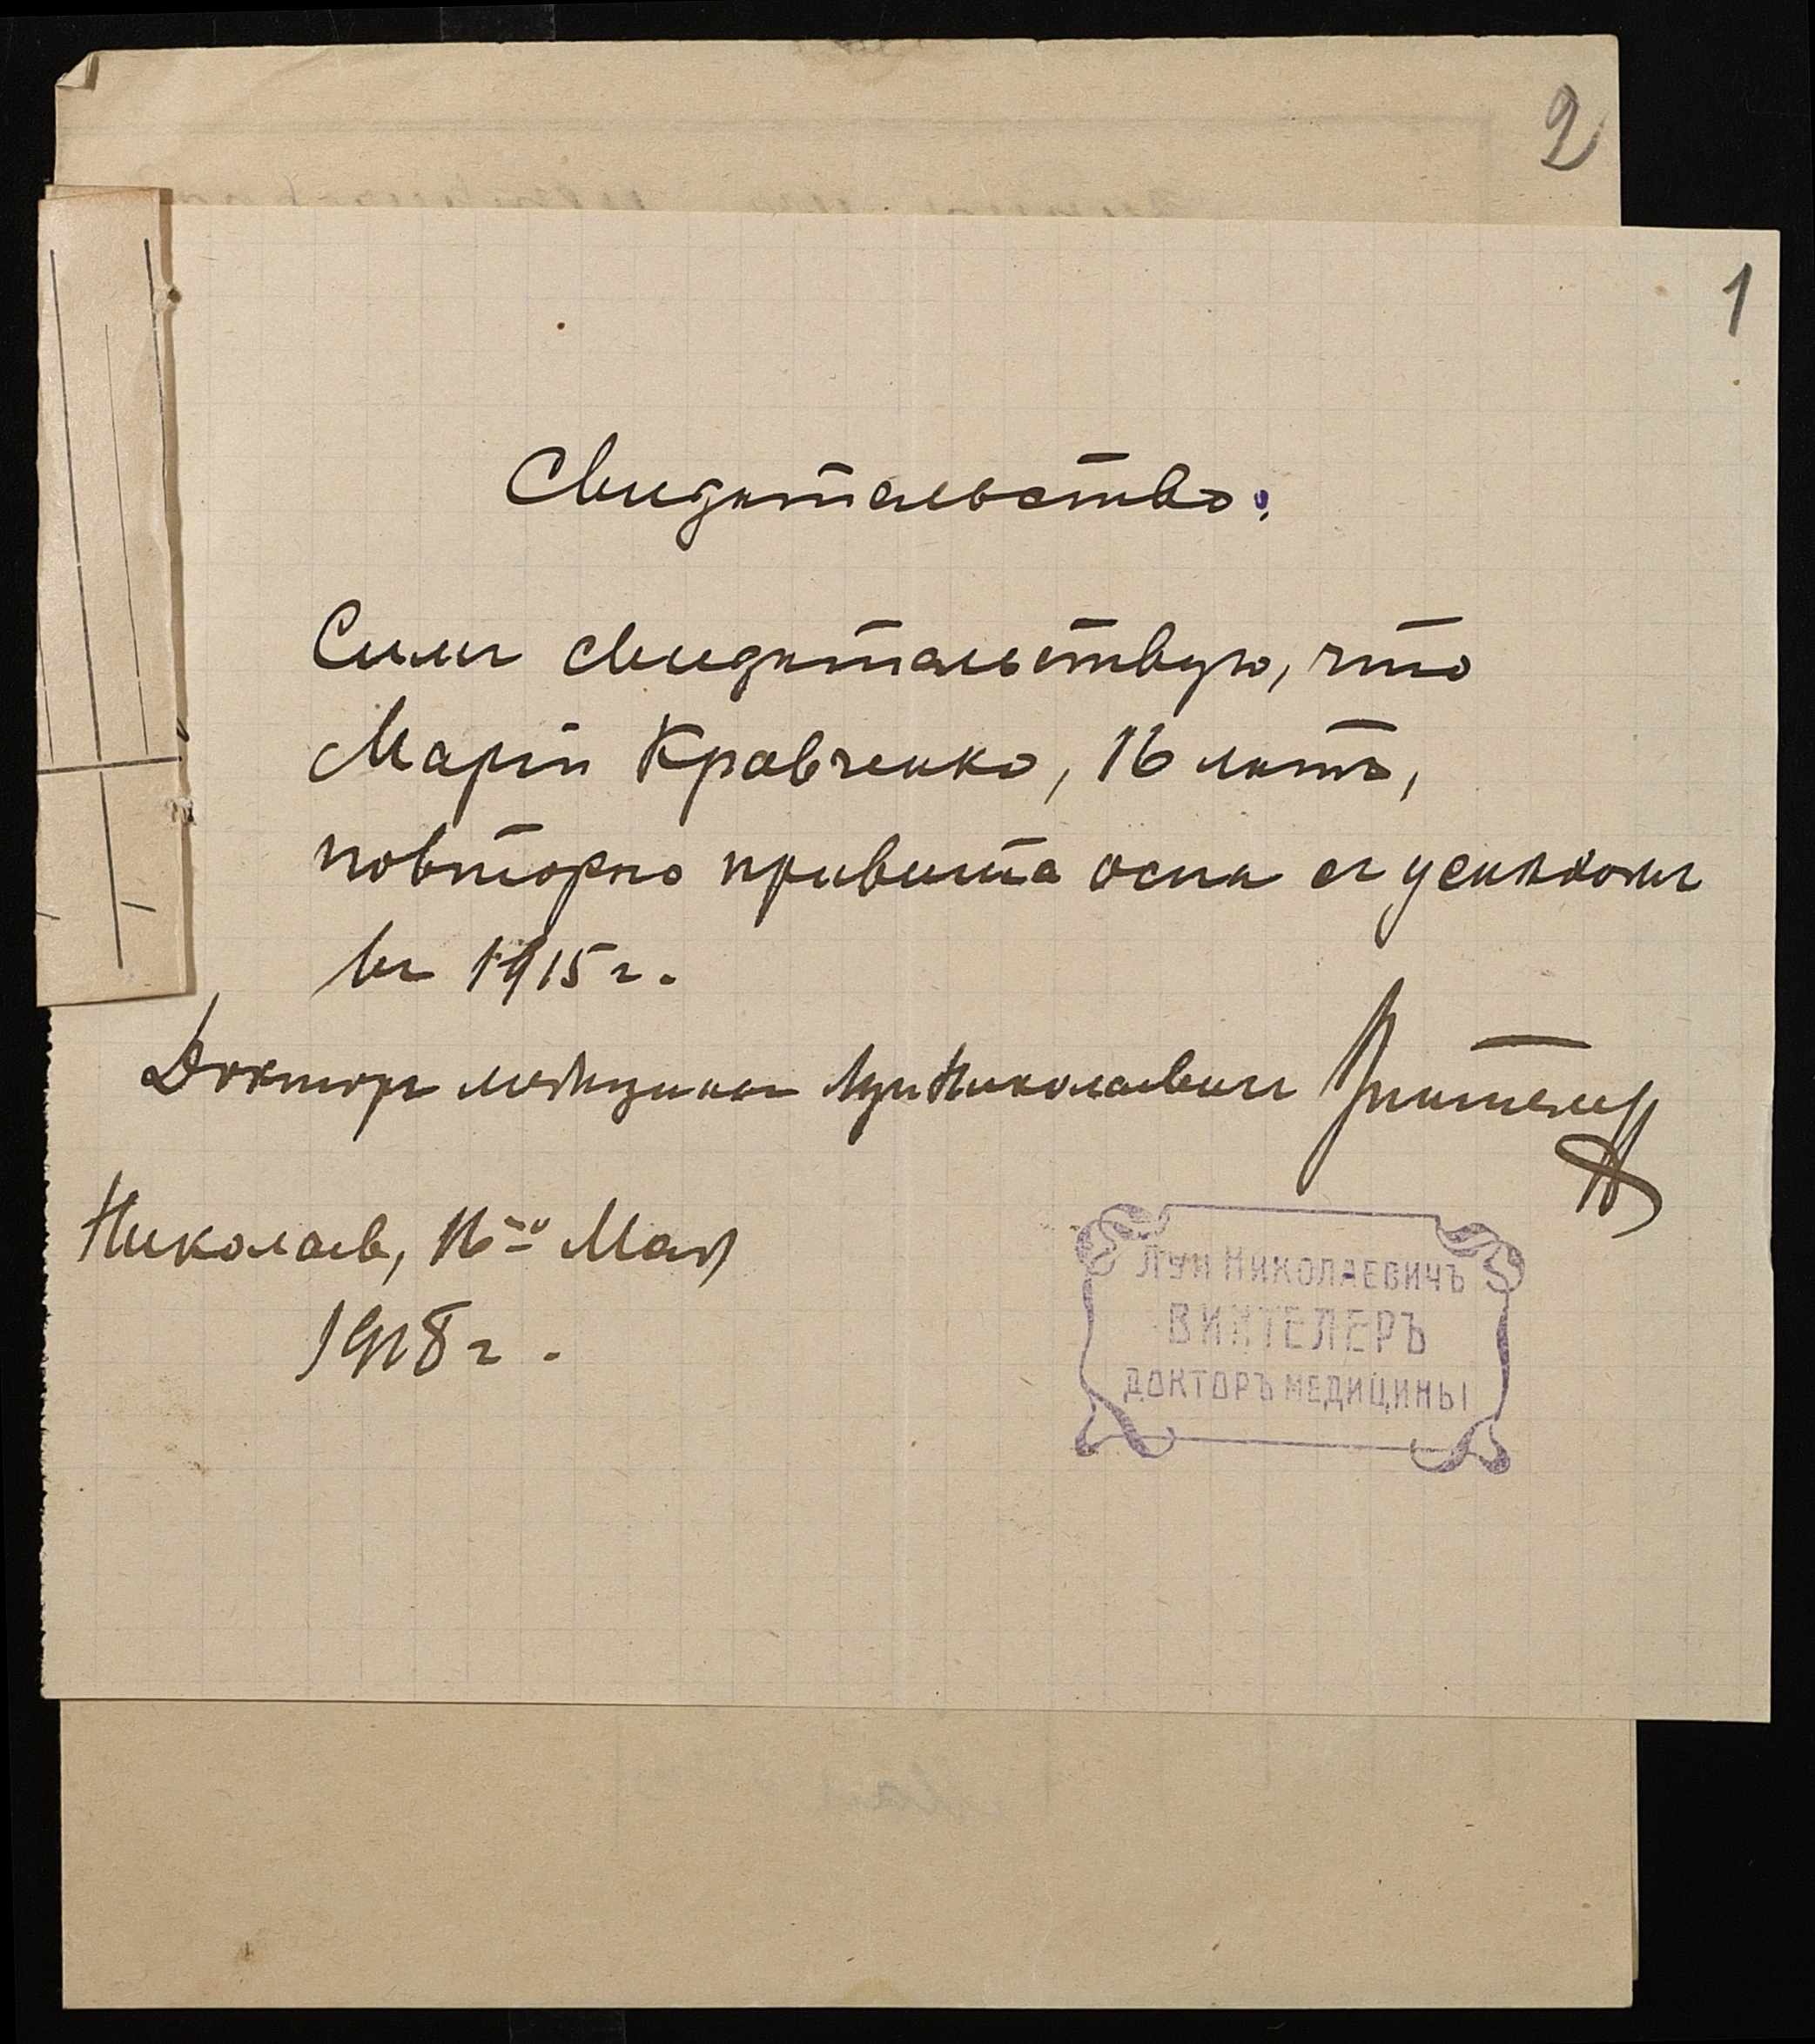 2
1
Свидѣтельство.
Симъ свидѣтельствую, что
Маріи Кравченко, 16 лѣтъ,
повторно привита оспа съ успѣхомъ
въ 1915 г.
Докторъ медицины Луи Николаевичъ Винтелеръ
Николаев, 16го Мая
1918 г.
ЛУИ НИКОЛАЕВИЧЪ
ВИНТЕЛЕРЪ
ДОКТОРЪ МЕДИЦИНЫ